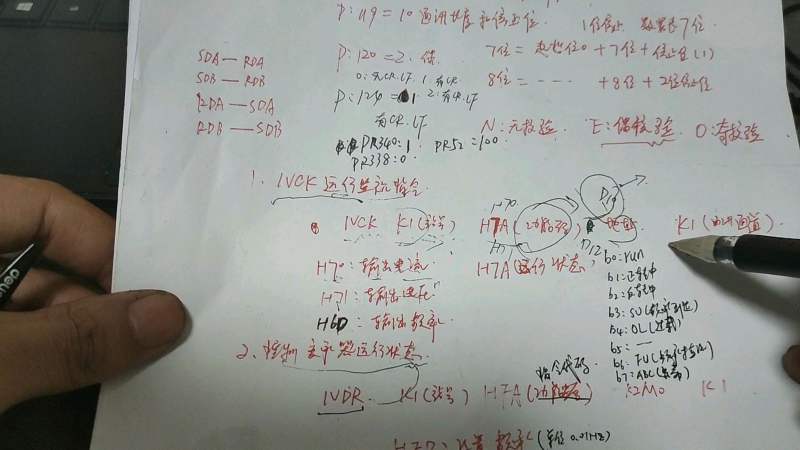 P:119=10 通讯长度和停止位 1位停止 数据长7位
SDA — RDA
SDB — RDB
RDA — SDA
RDB — SDB
P:120=2.
0:无CR.LF 1:有CR
P:124=1 2:有CR.LF
有CR.LF
PR340:1 PR52:=100
PR338:0
7位= 起始位0+7位+停止位(1)
8位= ---- +8位+2位停止位
N:无校验 E:偶校验 O:奇校验
1. IVCK 运行监视指令
IVCK K1(站号) H7A(指令代码) 地址 K1(通讯通道)
H70
D10
H7A(运行状态) D12
H70:输出电流
H71:输出电压
H6D:输出频率
b0:run
b1:正转中
b2:反转中
b3:SU(频率到达)
b4:OL(过载)
b5:—
b6:FU(频率检测)
b7:ABC(异常)
2. 控制变频器运行状态
指令代码
IVDR K1(站号) H7A K2M0 K1
(单位 0.01HZ)